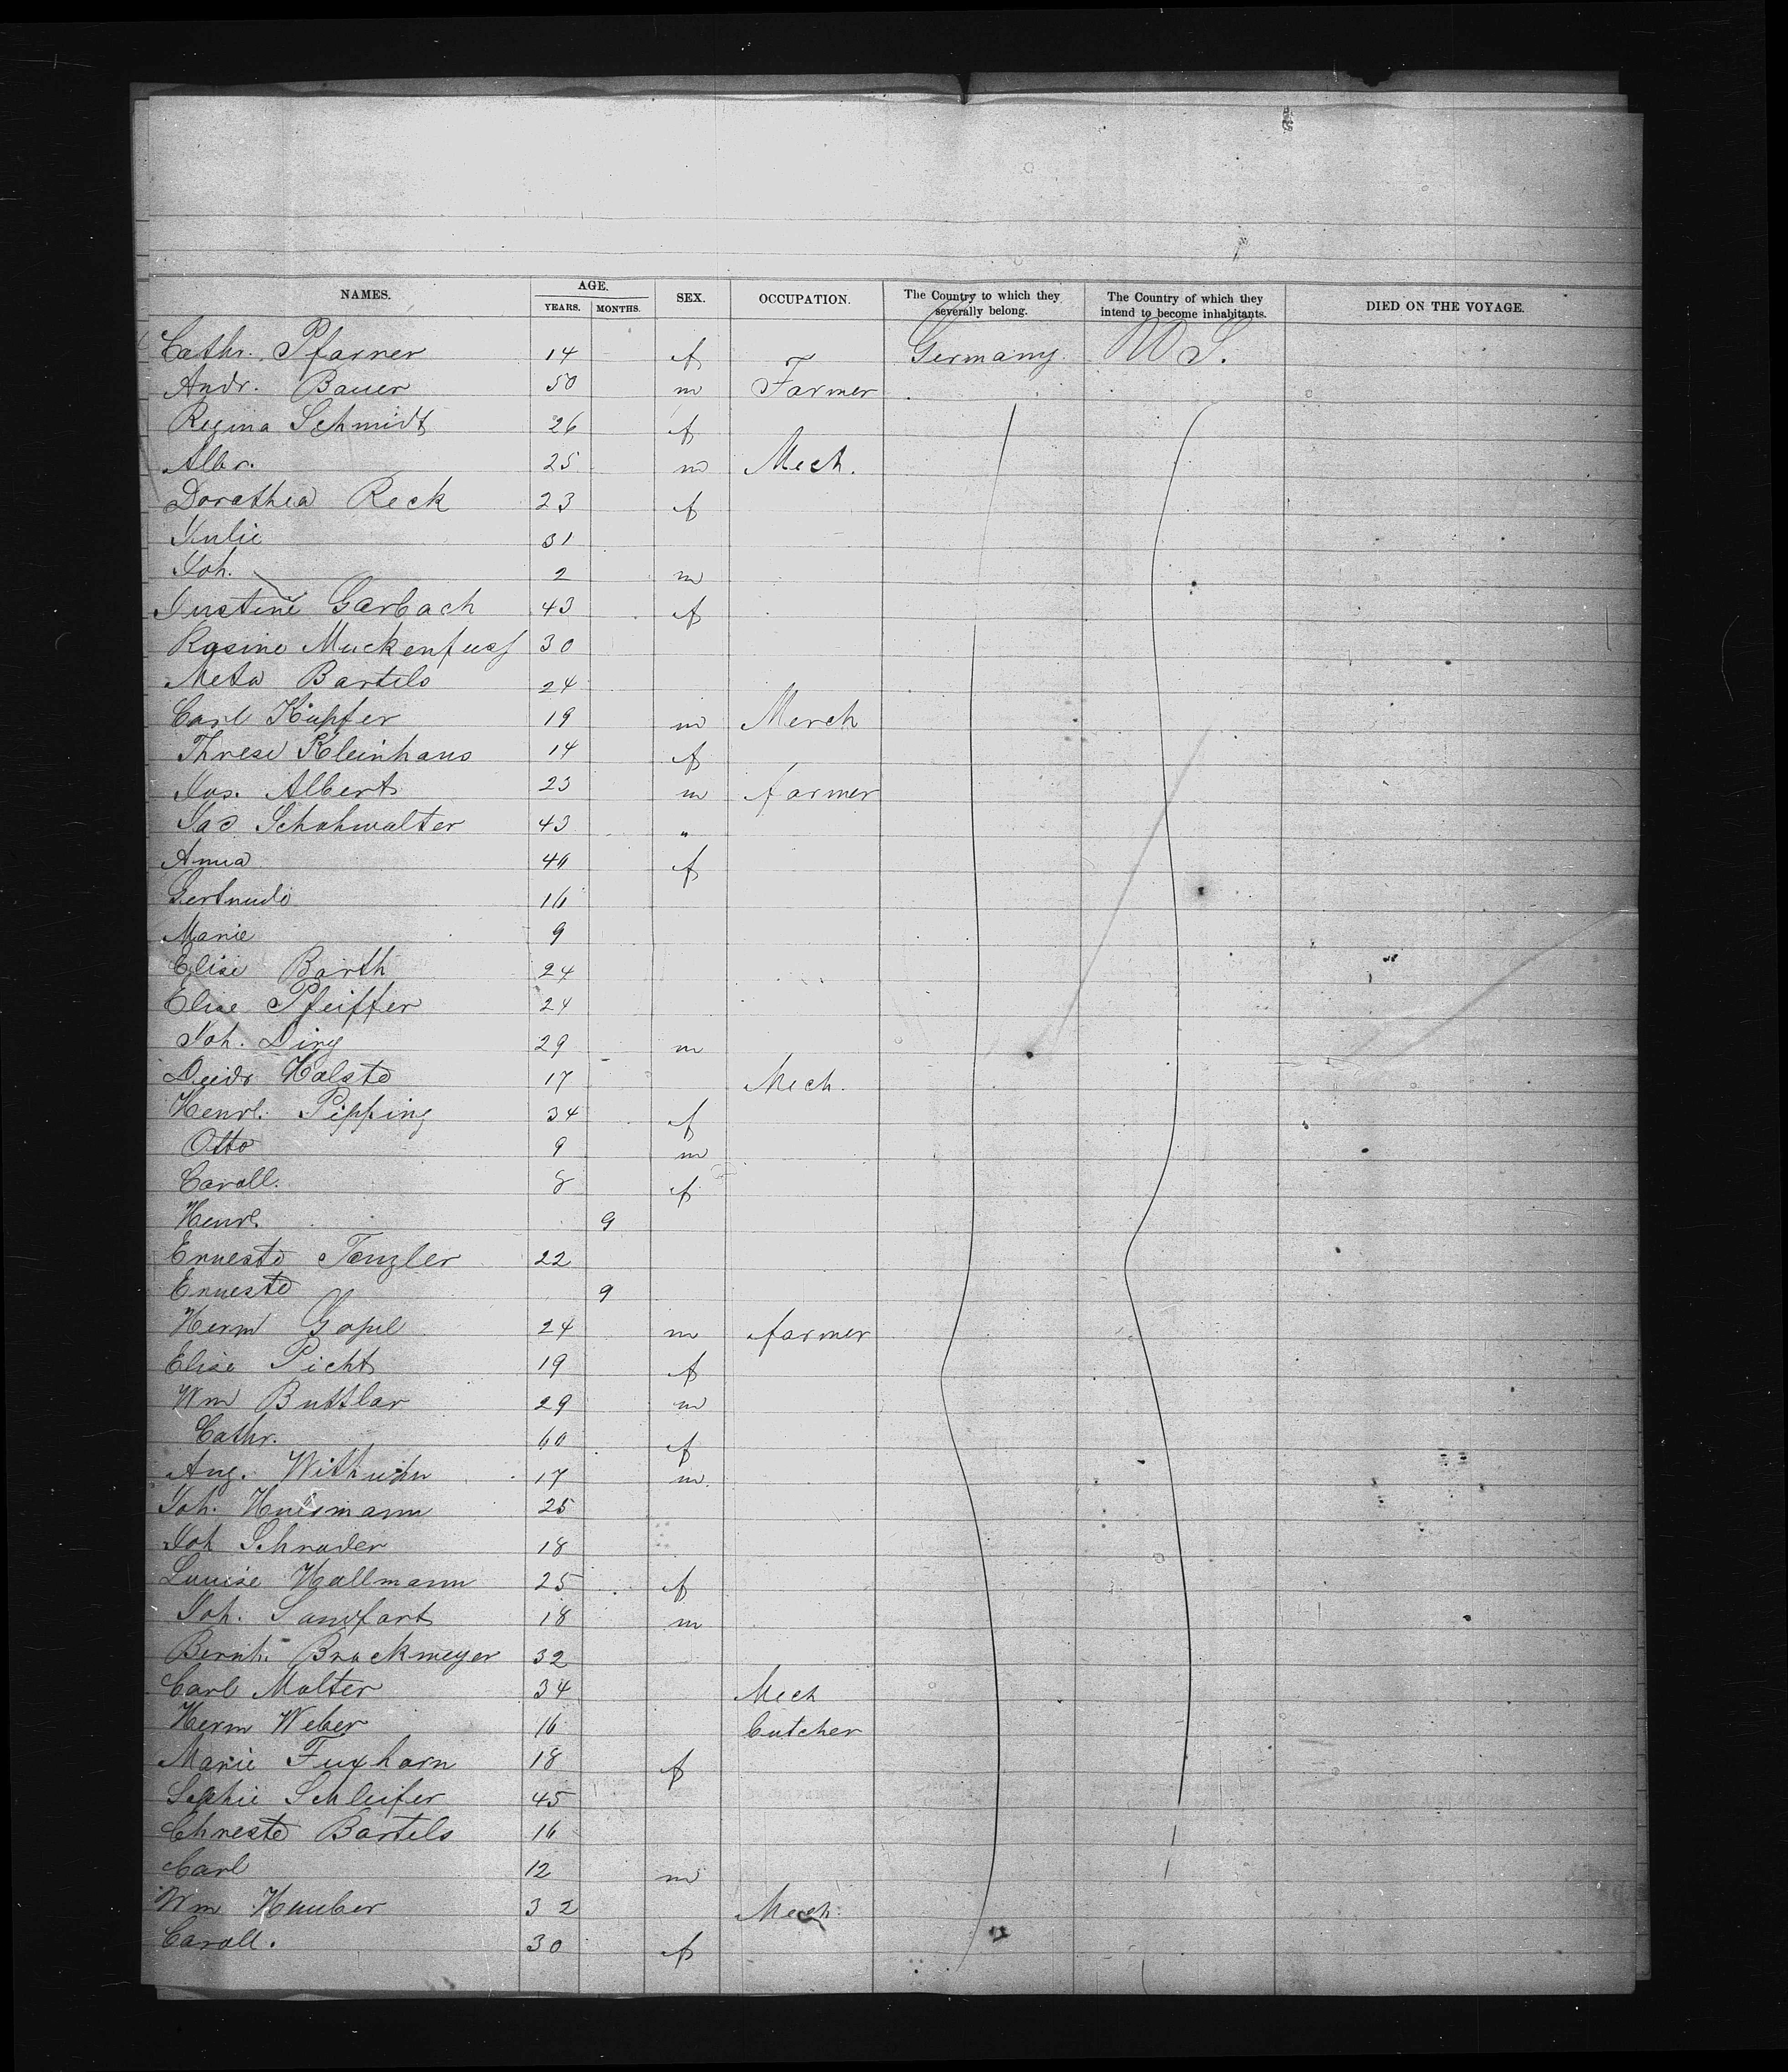 NAMES. AGE. SEX. OCCUPATION. The Country to which they severally belong. The Country of which they intend to become inhabitants. DIED ON THE VOYAGE.
YEARS. MONTHS.
Cathr. Pfarner 14 f Germany U S.
Andr. Bauer 50 m Farmer
Regina Schmidt 26 f
Albr. 25 m Mech.
Dorathea Reck 23 f
Julie 31
Joh. 2 m
Justine Garbach 43 f
Rosine Muckenfuss 30
Meta Bartels 24
Carl Küpfer 19 m Merch
Threse Kleinhans 14 f
Jos. Albert 23 m farmer
Jac Schohwalter 43 "
Anna 40 f
Gertrude 16
Marie 9
Elise Barth 24
Elise Pfeiffer 24
Joh. Ding 29 m
Diedr Holste 17 Mech.
Henrl. Pipping 34 f
Otto 9 m
Caroll. 8 f
Henrl. 9
Erneste Tenzler 22
Erneste 9
Herm Gopel 24 m farmer
Elise Picht 19 f
Wm Buttlar 29 m
Cathr. 60 f
Aug. 17 m
Joh. Huesmann 25
Joh Schrader 18
Louise Hallmann 25 f
Joh. Sandfort 18 m
Bernh. Brockmeyer 32
Carl Molter 34 Mech
Herm Weber 16 butcher
Marie Fuxhorn 18 f
Sophie Schleifer 45
Chreste Bartels 16
Carl 12 m
Wm Hauber 32 Mech.
Caroll. 30 f